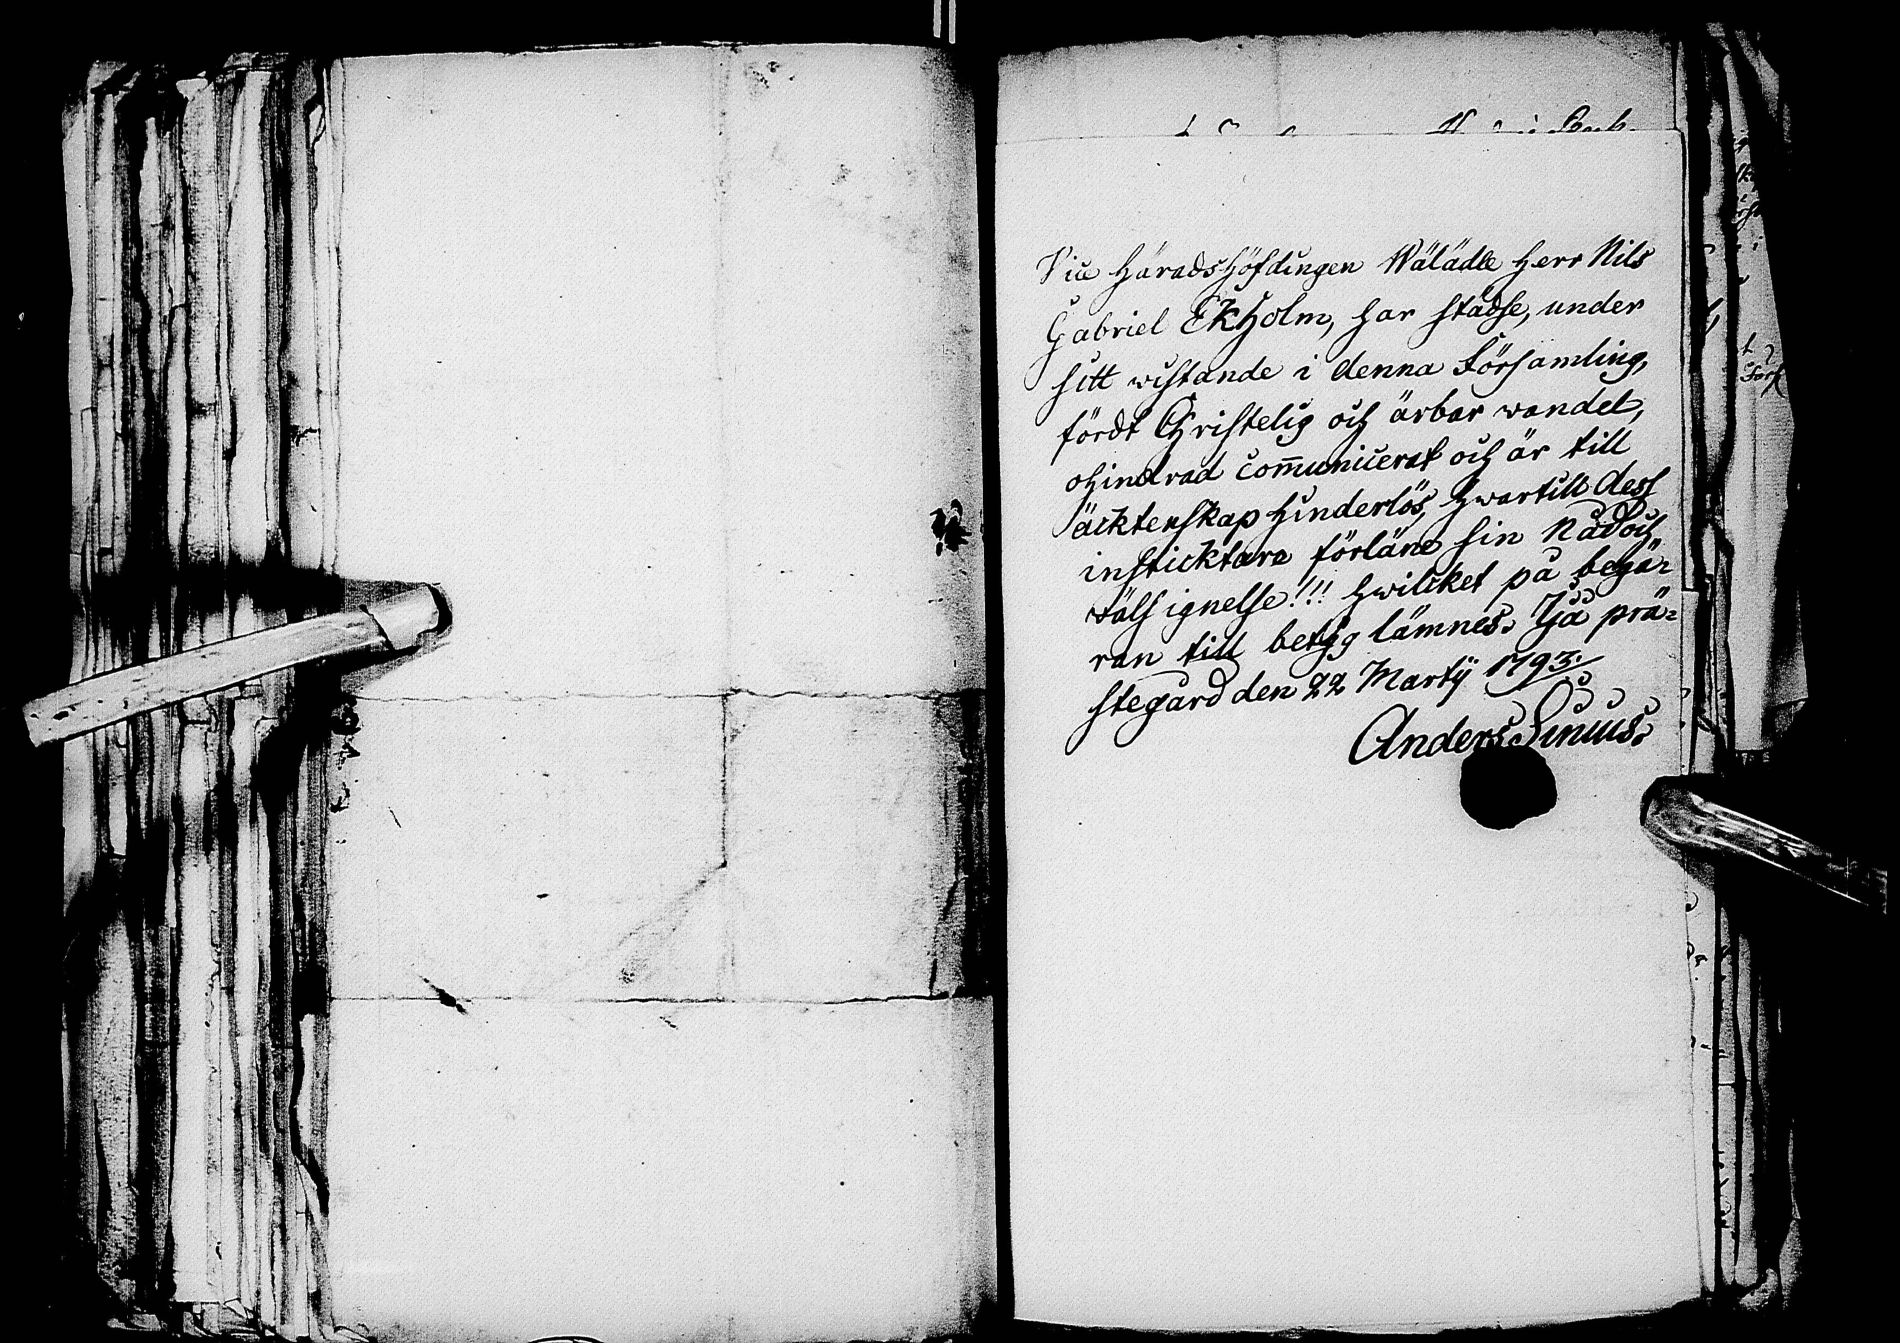 Vice Häradshöfdingen Wälädle Herr Nils
Gabriel Ekholm, har städse, under
sitt wistande i denna Församling,
fördt Christelig och ärbar wandel,
ohindrad com̄unicerat och är till
äcktenskap hinderlös, hwartill dess
insticktare förläne sin Nåd och
wälsignelse!!! hwilcket på begä-
ran till betyg lämnes. Ysa prä-
stegård den 22 Martij 1793.
Anders